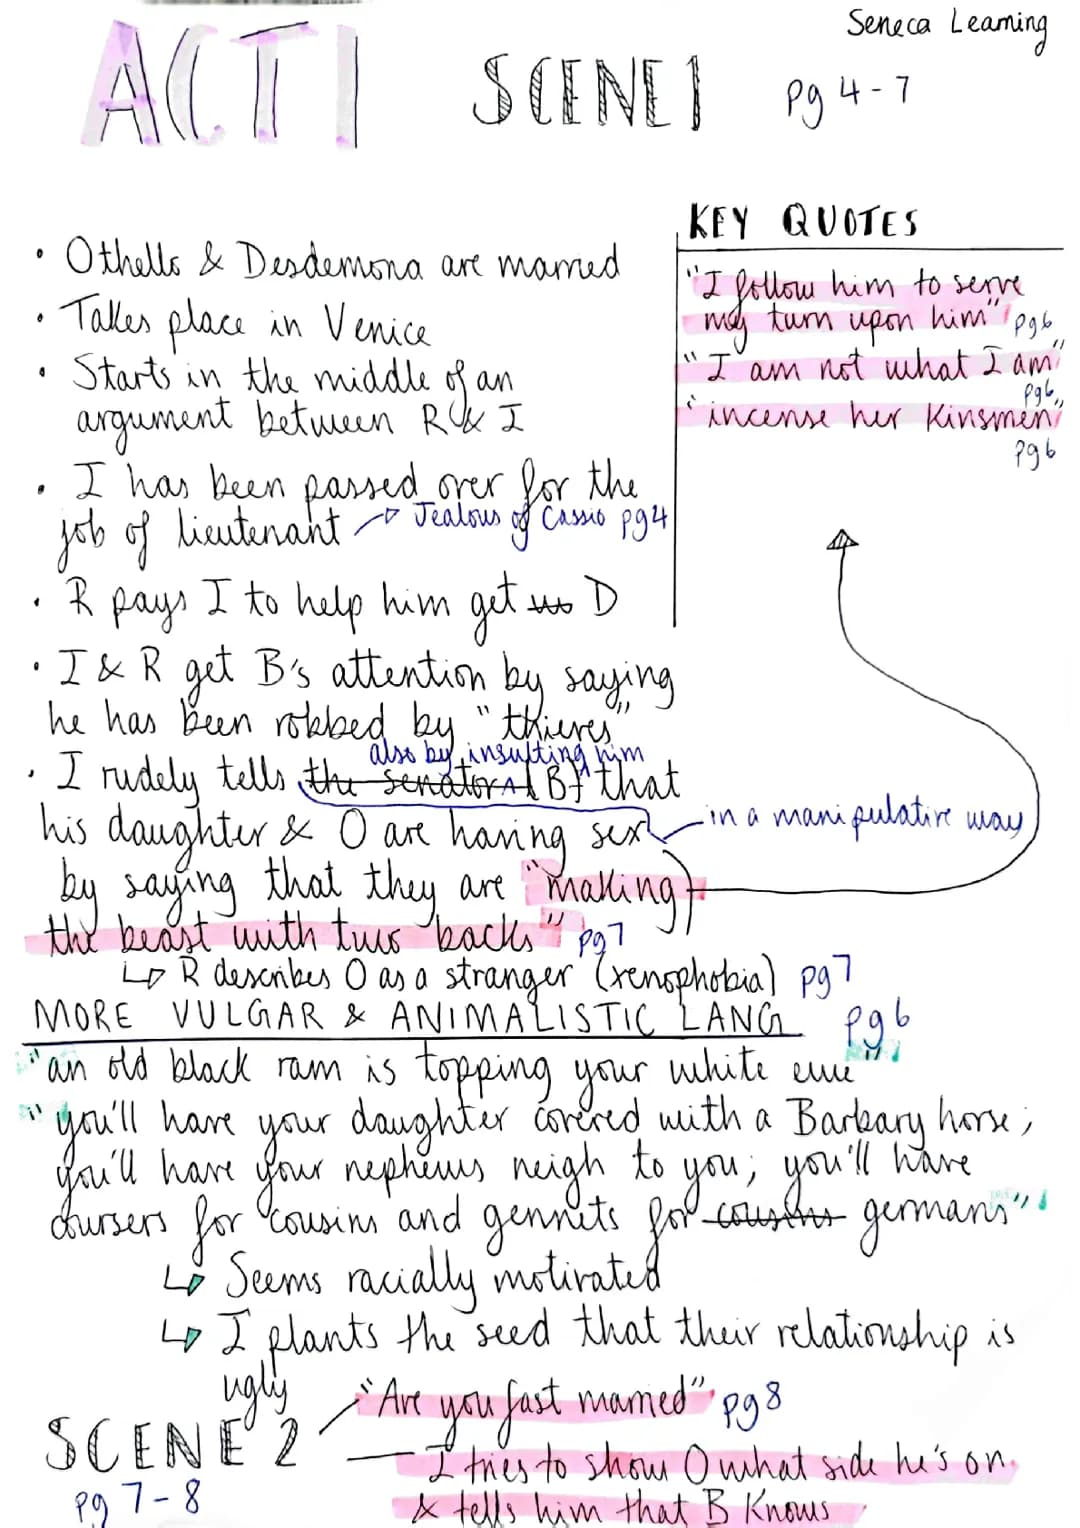 Seneca Learning
ACT 1 SCENE 1 pg 4-7
• Othello & Desdemona are married
• Takes place in Venice
• Starts in the middle of an
argument between R & I
• I has been passed over for the
job of lieutenant → Jealous of Cassio pg4
• R pays I to help him get D
• I & R get B's attention by saying
he has been robbed by "thieves"
also by insulting him
• I rudely tells the senator (B) that
his daughter & O are having sex
in a manipulative way
by saying that they are "making
the beast with two backs" pg7
↳ R describes O as a stranger (xenophobia) pg7
KEY QUOTES
"I follow him to serve
my turn upon him" pg6
"I am not what I am"
pg6
"incense her kinsmen"
pg6
MORE VULGAR & ANIMALISTIC LANG pg6
"an old black ram is topping your white ewe"
"you'll have your daughter covered with a Barbary horse;
you'll have your nephews neigh to you; you'll have
coursers for cousins and gennets for cousins germans"
↳ Seems racially motivated
↳ I plants the seed that their relationship is
ugly
SCENE 2
pg 7-8
"Are you fast married" pg8
I tries to show O what side he's on
& tells him that B knows